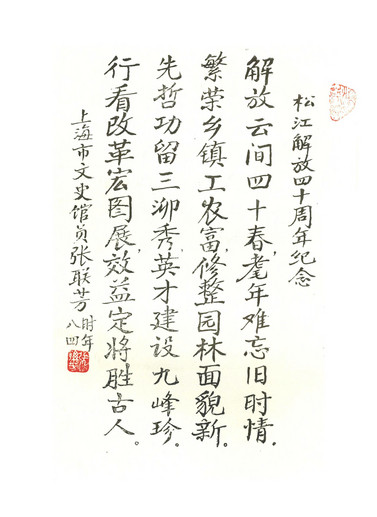 松江解放四十周年纪念
解放云间四十春，耄年难忘旧时情。
繁荣乡镇工农富，修整园林面貌新。
先哲功留三泖秀，英才建设九峰珍。
行看改革宏图展，效益定将胜古人。
上海市文史馆员张联芳时年
八四